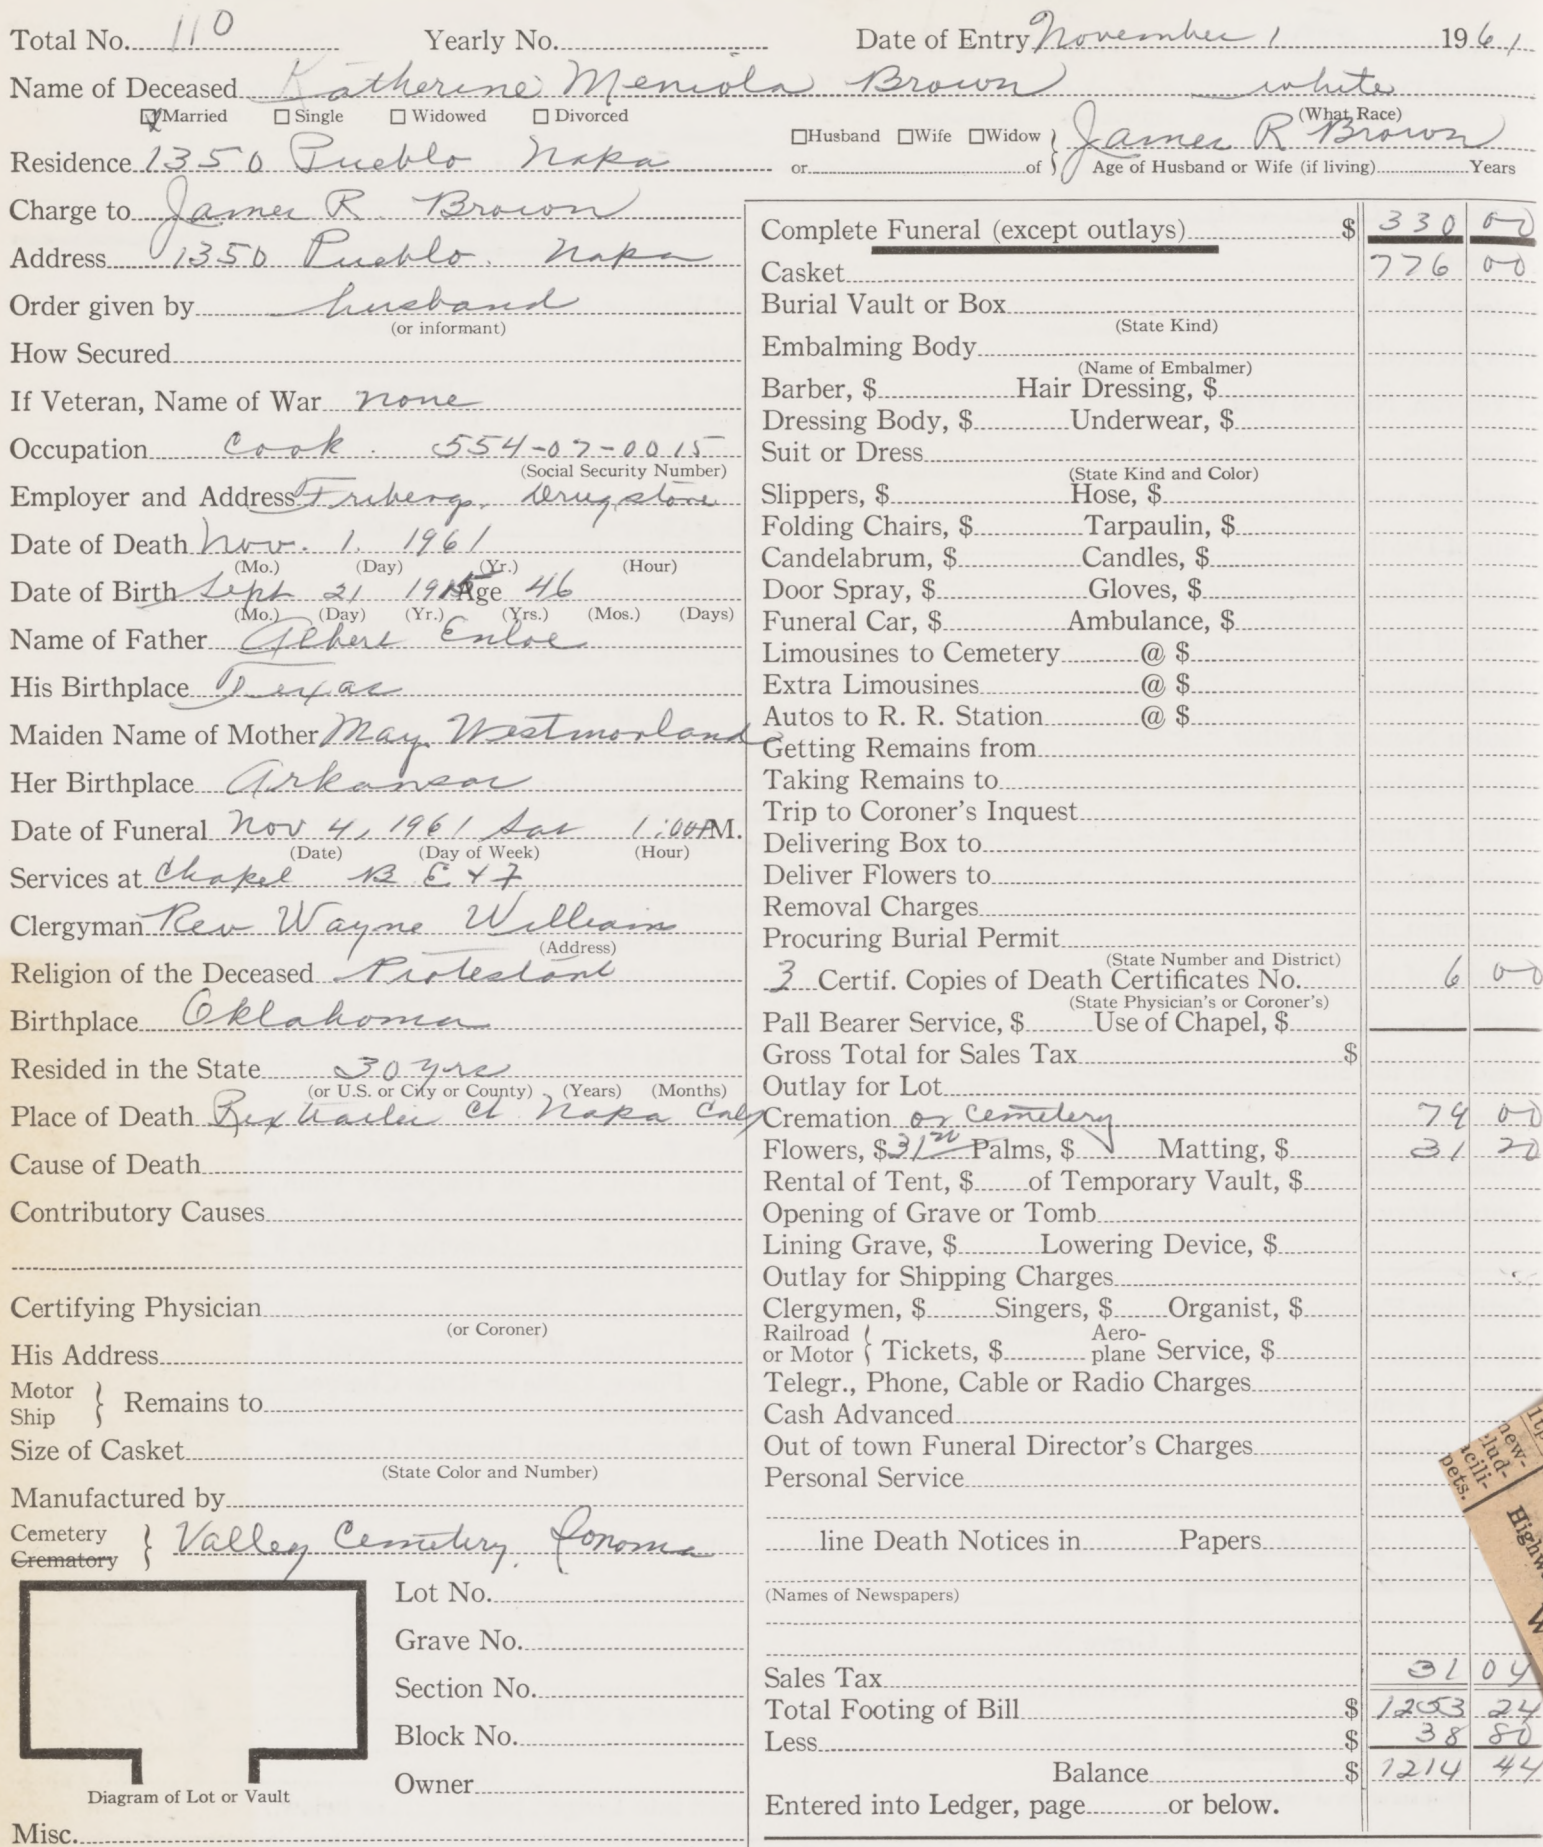 Total No. 110 Yearly No. Date of Entry November 1 1961
Name of Deceased Katherine Meniola Brown white
Married Single Widowed Divorced (What Race)
Husband Wife Widow } James R Brown
Residence 1350 Pueblo Napa
or of } Age of Husband or Wife (if living) Years
Charge to James R. Brown
Address 1350 Pueblo. Napa
Order given by husband
(or informant)
How Secured
If Veteran, Name of War none
Occupation Cook. 554-07-0015
(Social Security Number)
Employer and Address Fribergs. Drugstore
Date of Death Nov. 1. 1961
(Mo.) (Day) (Yr.) (Hour)
Date of Birth Sept 21 1915 Age 46
(Mo.) (Day) (Yr.) (Yrs.) (Mos.) (Days)
Name of Father Albert Enloe
His Birthplace Texas
Maiden Name of Mother May Westmorland
Her Birthplace Arkansas
Date of Funeral Nov 4, 1961 Sat 1:00 PM.
(Date) (Day of Week) (Hour)
Services at Chapel B E & F
Clergyman Rev Wayne William
(Address)
Religion of the Deceased Protestant
Birthplace Oklahoma
Resided in the State 30 yrs
(or U.S. or City or County) (Years) (Months)
Place of Death Rex trailer Ct Napa Calf
Cause of Death
Contributory Causes
Certifying Physician
(or Coroner)
His Address
Motor Ship } Remains to
Size of Casket
(State Color and Number)
Manufactured by
Cemetery
Crematory } Valley Cemetery, Sonoma
Lot No.
Grave No.
Section No.
Block No.
Owner
Diagram of Lot or Vault
Misc.
Complete Funeral (except outlays) $ 330 00
Casket 776 00
Burial Vault or Box
(State Kind)
Embalming Body
(Name of Embalmer)
Barber, $ Hair Dressing, $
Dressing Body, $ Underwear, $
Suit or Dress
(State Kind and Color)
Slippers, $ Hose, $
Folding Chairs, $ Tarpaulin, $
Candelabrum, $ Candles, $
Door Spray, $ Gloves, $
Funeral Car, $ Ambulance, $
Limousines to Cemetery @ $
Extra Limousines @ $
Autos to R. R. Station @ $
Getting Remains from
Taking Remains to
Trip to Coroner's Inquest
Delivering Box to
Deliver Flowers to
Removal Charges
Procuring Burial Permit
(State Number and District)
3 Certif. Copies of Death Certificates No. 6 00
(State Physician's or Coroner's)
Pall Bearer Service, $ Use of Chapel, $
Gross Total for Sales Tax $
Outlay for Lot
Cremation or Cemetery 79 00
Flowers, $31 20 Palms, $ Matting, $ 31 20
Rental of Tent, $ of Temporary Vault, $
Opening of Grave or Tomb
Lining Grave, $ Lowering Device, $
Outlay for Shipping Charges
Clergymen, $ Singers, $ Organist, $
Railroad or Motor { Tickets, $ Aero-plane Service, $
Telegr., Phone, Cable or Radio Charges
Cash Advanced
Out of town Funeral Director's Charges
Personal Service
line Death Notices in Papers
(Names of Newspapers)
Sales Tax 31 04
Total Footing of Bill $ 1253 24
Less $ 38 80
Balance $ 1214 44
Entered into Ledger, page or below.
new-
lud-
acili-
pets.
Highw
W